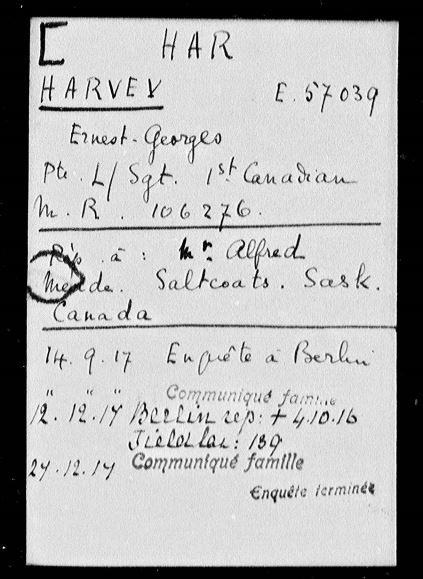 [ HAR
HARVEY E. 57039
Ernest-Georges
Pte. L/Sgt. 1st Canadian
M. R. 106276.
Rép à : Mr Alfred
Saltcoats. Sask.
Canada
14. 9. 17 Enquête à Berlin
" " " Communiqué famille
12. 12. 17 Berlin rép: + 4.10.16
: 139
27.12.17 Communiqué famille
Enquête terminée